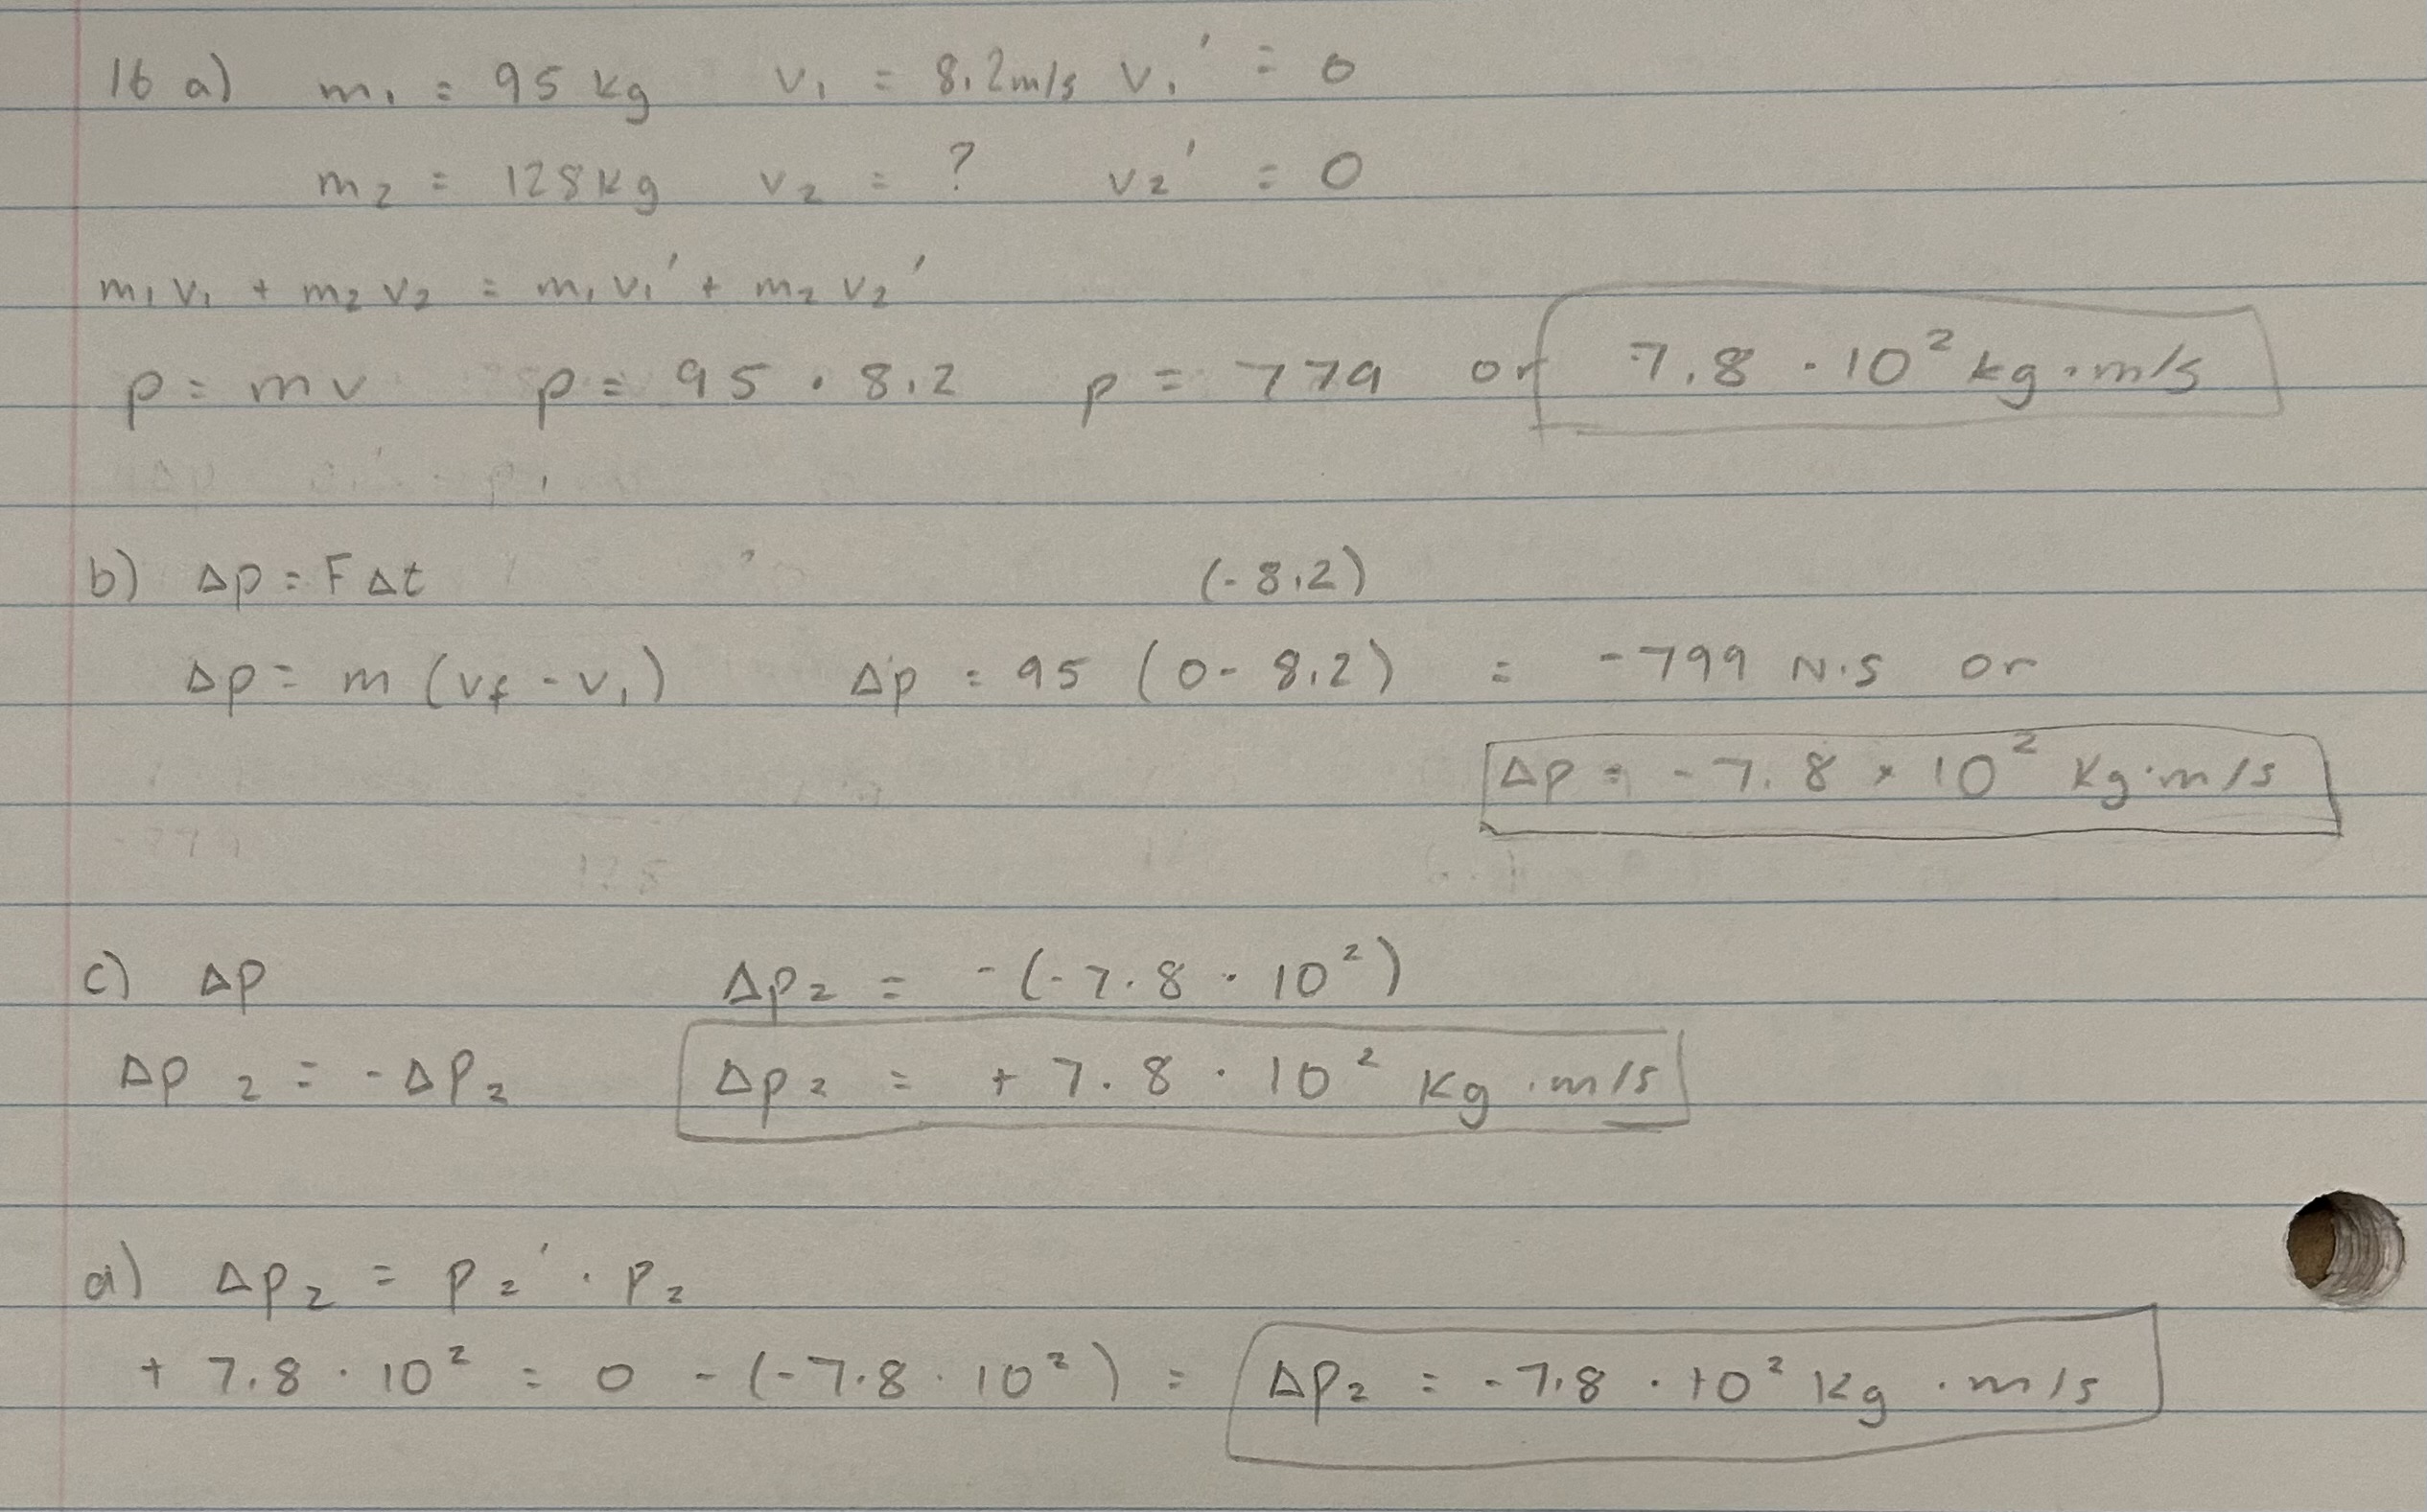 16 a) m₁ = 95 kg v₁ = 8.2m/s v₁' = 0
m₂ = 128kg v₂ = ? v₂' = 0
m₁v₁ + m₂v₂ = m₁v₁' + m₂v₂'
p = mv p = 95 · 8.2 p = 779 or 7.8 · 10² kg·m/s
b) Δp = FΔt (-8.2)
Δp = m (vf - v₁) Δp = 95 (0 - 8.2) = -799 N·S or
Δp = -7.8 × 10² Kg·m/s
c) Δp Δp₂ = -(-7.8 · 10²)
Δp₂ = -Δp₂ Δp₂ = +7.8 · 10² Kg·m/s
d) Δp₂ = p₂' · p₂
+ 7.8 · 10² = 0 - (-7.8 · 10²) = Δp₂ = -7.8 · 10² Kg · m/s